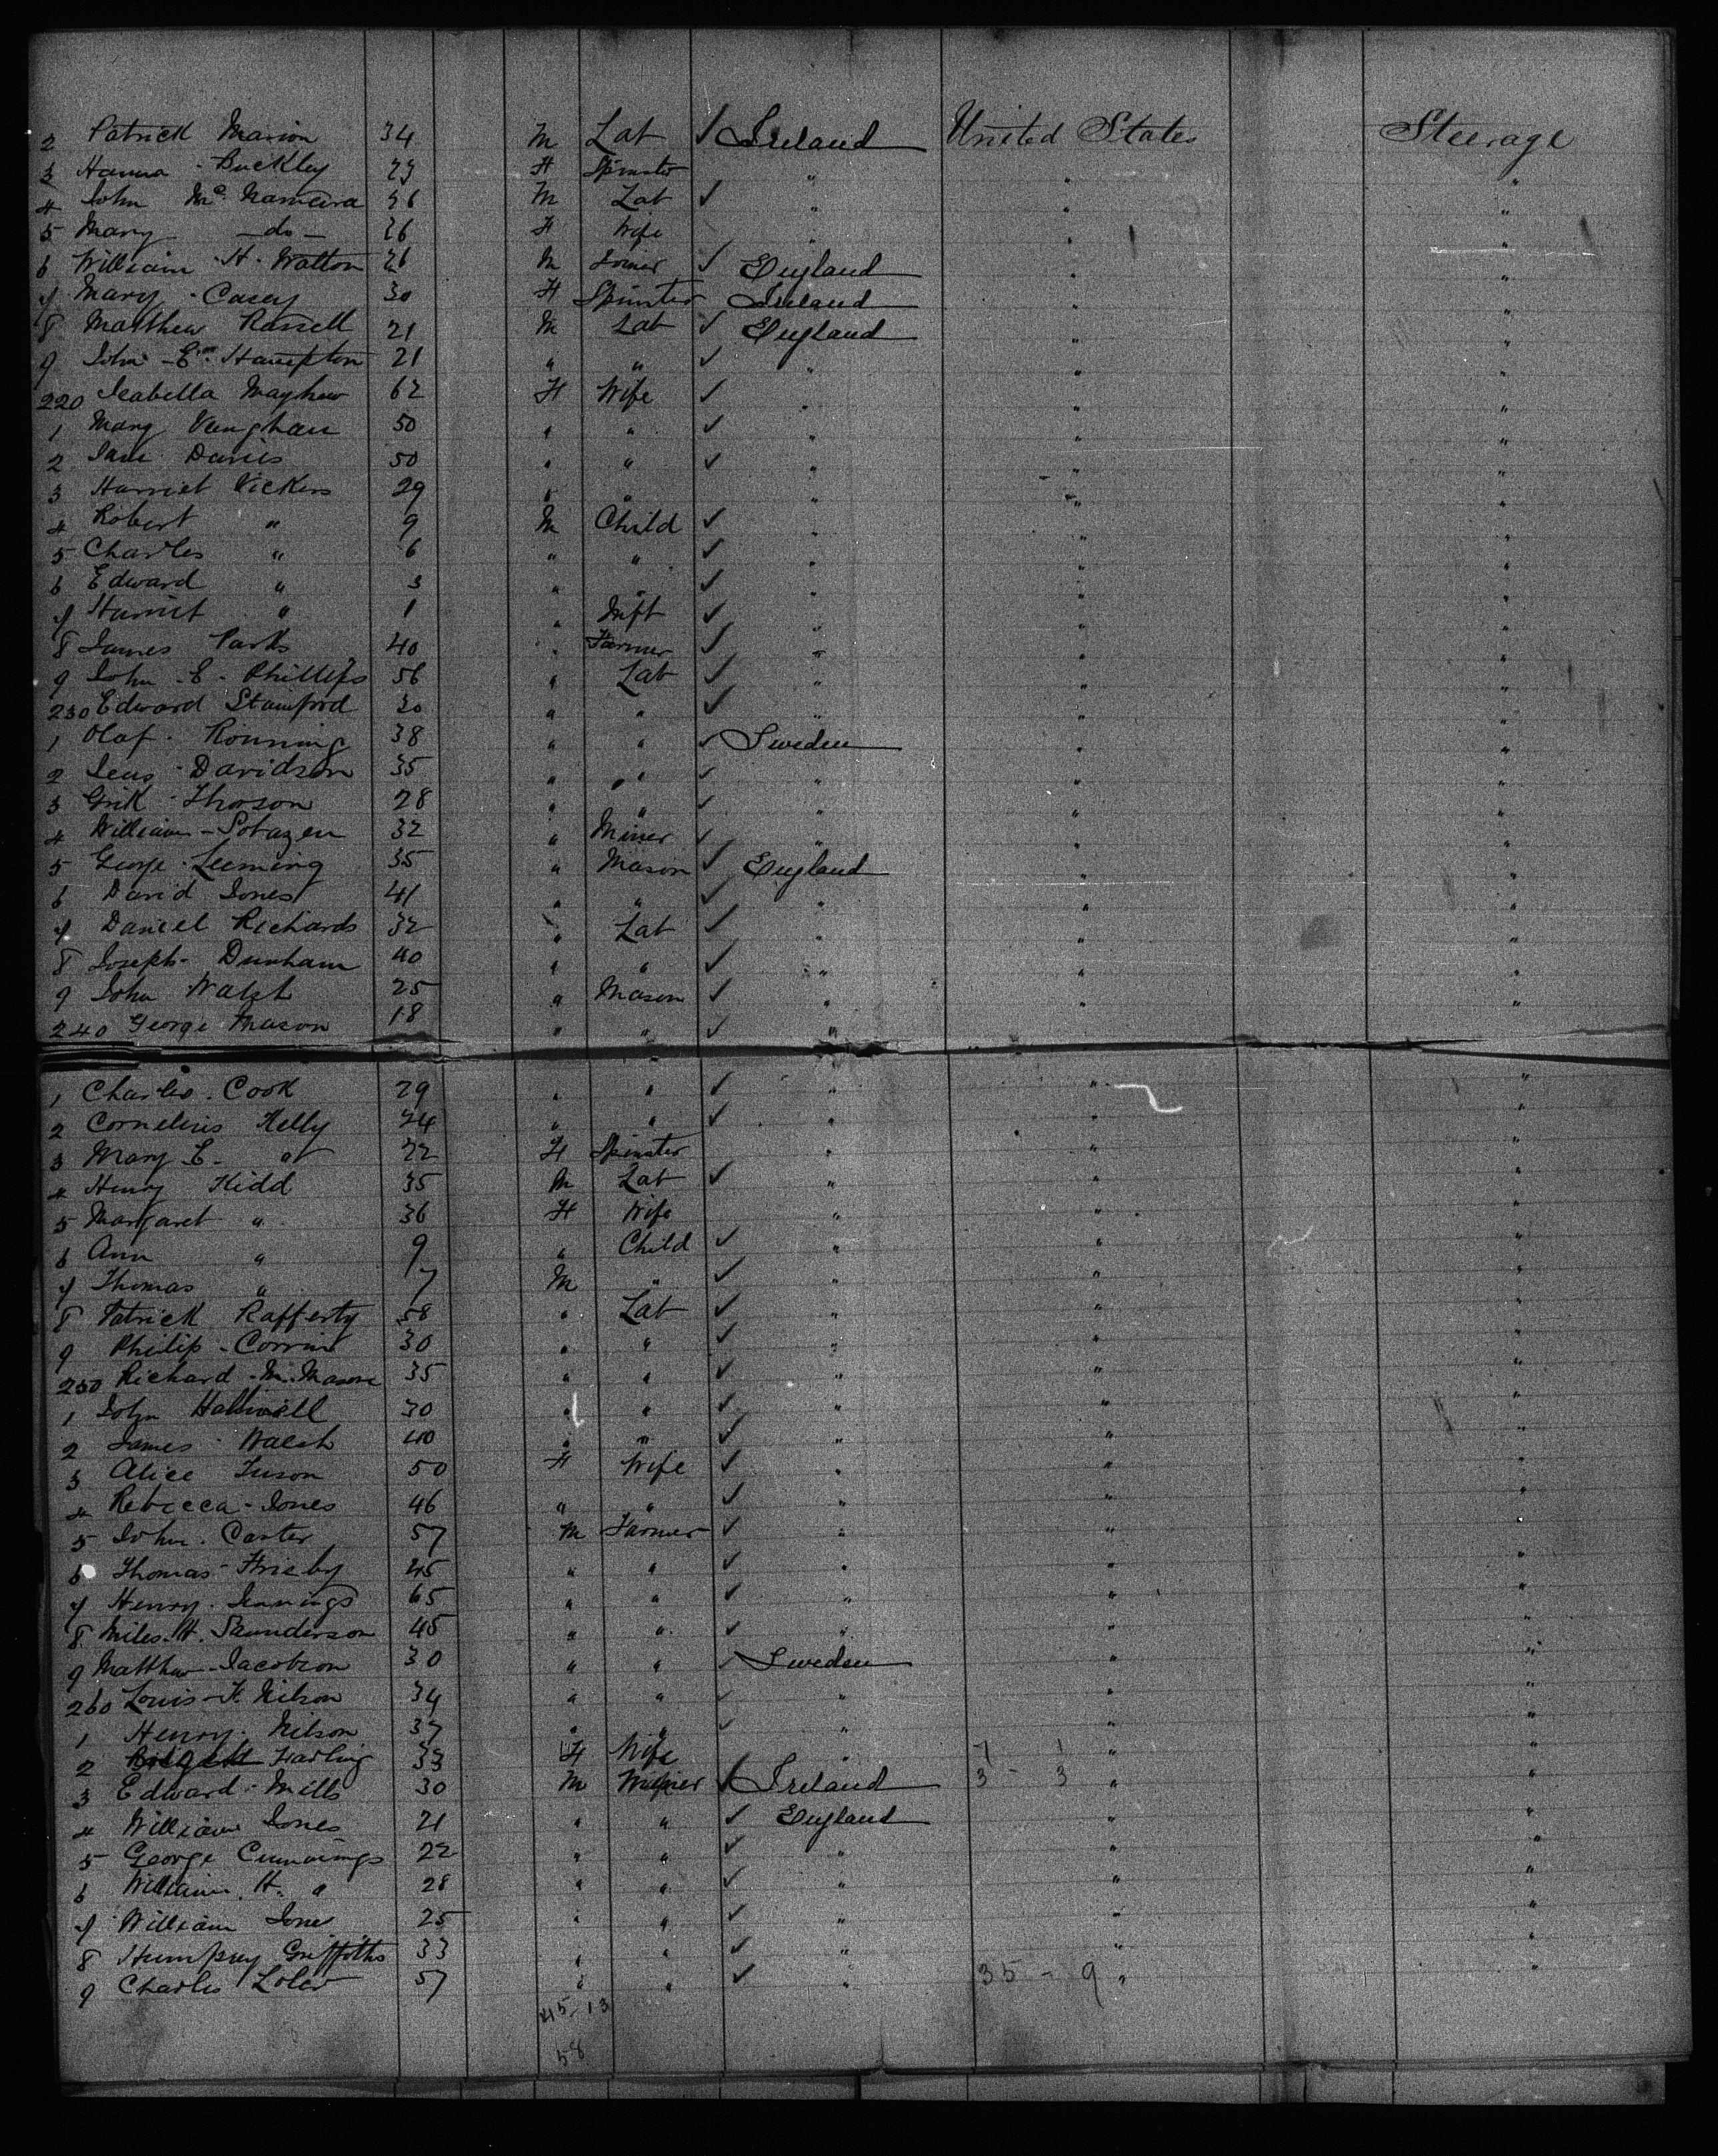 2 Patrick Marion 34 M Lab ✓ Ireland United States Steerage
3 Hanna Buckley 23 F Spinster " " "
4 John Mc Namara 36 M Lab ✓ " " "
5 Mary —do— 26 F Wife " " "
6 William H. Walton 26 M Joiner ✓ England " "
7 Mary Casey 30 F Spinster Ireland " "
8 Matthew Russell 21 M Lab ✓ England " "
9 John Hampton 21 " " ✓ " " "
220 Isabella Mayhew 62 F Wife ✓ " " "
1 Mary Vaughan 50 " " ✓ " " "
2 Jane Davies 50 " " ✓ " " "
3 Harriet Vickers 29 " " " " "
4 Robert " 9 M Child ✓ " " "
5 Charles " 6 " " ✓ " " "
6 Edward " 3 " " ✓ " " "
7 Harriet " 1 " Inft ✓ " " "
8 James Parks 40 " Farmer ✓ " " "
9 John E. Phillips 56 " Lab ✓ " " "
230 Edward Stamford 30 " " ✓ " " "
1 Olaf Ronning 38 " " ✓ Sweden " "
2 Jens Davidson 35 " " ✓ " " "
3 Erik Thorson 28 " " ✓ " " "
4 William 32 " Miner ✓ " " "
5 George Leeming 35 " Mason ✓ England " "
6 David Jones 41 " " ✓ " " "
7 Daniel Richards 32 " Lab ✓ " " "
8 Joseph Dunham 40 " " ✓ " " "
9 John Walsh 25 " Mason ✓ " " "
240 George Mason 18 " " ✓ "
1 Charles Cook 29 " " ✓ " " "
2 Cornelius Kelly 24 " " ✓ " " "
3 Mary E. " 22 F Spinster " " "
4 Henry Kidd 35 M Lab ✓ " " "
5 Margaret " 36 F Wife " " "
6 Ann " 9 " Child ✓ " " "
7 Thomas " 7 M " ✓ " " "
8 Patrick Rafferty 58 " Lab ✓ " " "
9 Philip 30 " " ✓ " " "
250 Richard M. Mason 35 " " ✓ " " "
1 John Halliwell 30 " " ✓ " " "
2 James Walsh 40 " " ✓ " " "
3 Alice Tuson 50 F Wife ✓ " " "
4 Rebecca Jones 46 " " ✓ " " "
5 John Carter 57 M Farmer ✓ " " "
6 Thomas Frisby 45 " " ✓ " " "
7 Henry Jennings 65 " " ✓ " " "
8 Miles H. Saunderson 45 " " ✓ " " "
9 Matthew Jacobson 30 " " ✓ Sweden " "
260 Louis F. Nilson 34 " " ✓ " " "
1 Henry Nilson 37 " " ✓ " " "
2 Harling 33 F Wife " " "
3 Edward Mills 30 M Miner ✓ Ireland 3 - 3 " "
4 William Jones 21 " " ✓ England " "
5 George Cummings 22 " " ✓ " " "
6 William H. " 28 " " ✓ " " "
7 William Jones 25 " " ✓ " " "
8 Humpray Griffiths 33 " " ✓ " " "
9 Charles 57 " " ✓ " 35 - 9 " "
45-13
58